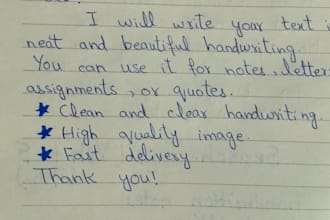 I will write your text
neat and beautiful handwriting.
You can use it for notes, letter
assignments, or quotes.
★ Clean and clear handwriting.
★ High quality image.
★ Fast delivery
Thank you!